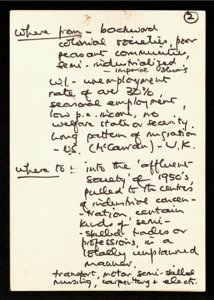 2
Where from - backward
colonial societies, poor
peasant communities,
semi-industrialized
- imperial
w/- unemployment
rate of over 30%
seasonal employment,
low p.c. income, no
welfare state or security.
Long pattern of migration
- U.S. (McCarran) - U.K.
where to : into the 'affluent
society' of 1950's
pulled to the centres
of industrial concen-
-tration certain
kinds of semi-
skilled trades or
professions, in a
totally unplanned
manner.
transport, motor, semi-skilled
nursing, carpentry & elect.